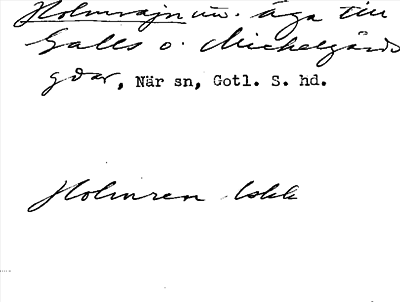 Holmrajn un. äga till
Galls o. Michelgårds
gdar, När sn, Gotl. S. hd.
Holmren